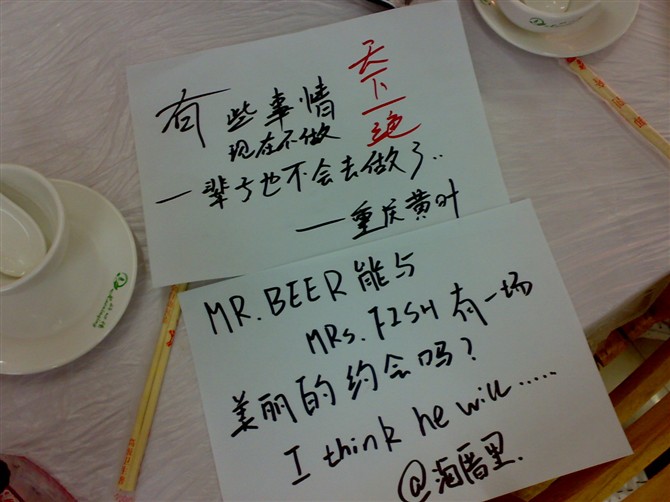 有些事情
现在不做
一辈子也不会去做了..
—重庆黄叶
天下一绝
MR.BEER能与
MRs.FISH有一场
美丽的约会吗?
I think he will.....